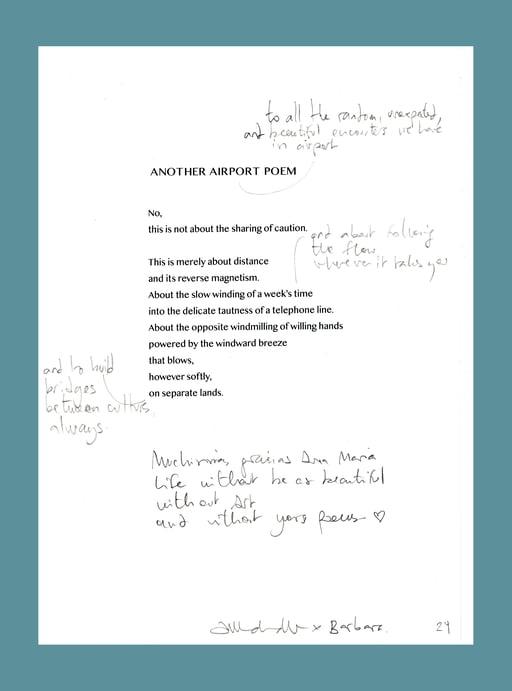 to all the random, unexpected,
and beautiful encounters we have
in airport
ANOTHER AIRPORT POEM
No,
this is not about the sharing of caution.
and about following
the flow
wherever it takes you
This is merely about distance
and its reverse magnetism.
About the slow winding of a week's time
into the delicate tautness of a telephone line.
About the opposite windmilling of willing hands
powered by the windward breeze
that blows,
however softly,
on separate lands.
and to build
bridges
between cultures
always.
Muchísimas gracias Ana María
Life without be as beautiful
without Art
and without yours poems ♡
x Barbara.
24